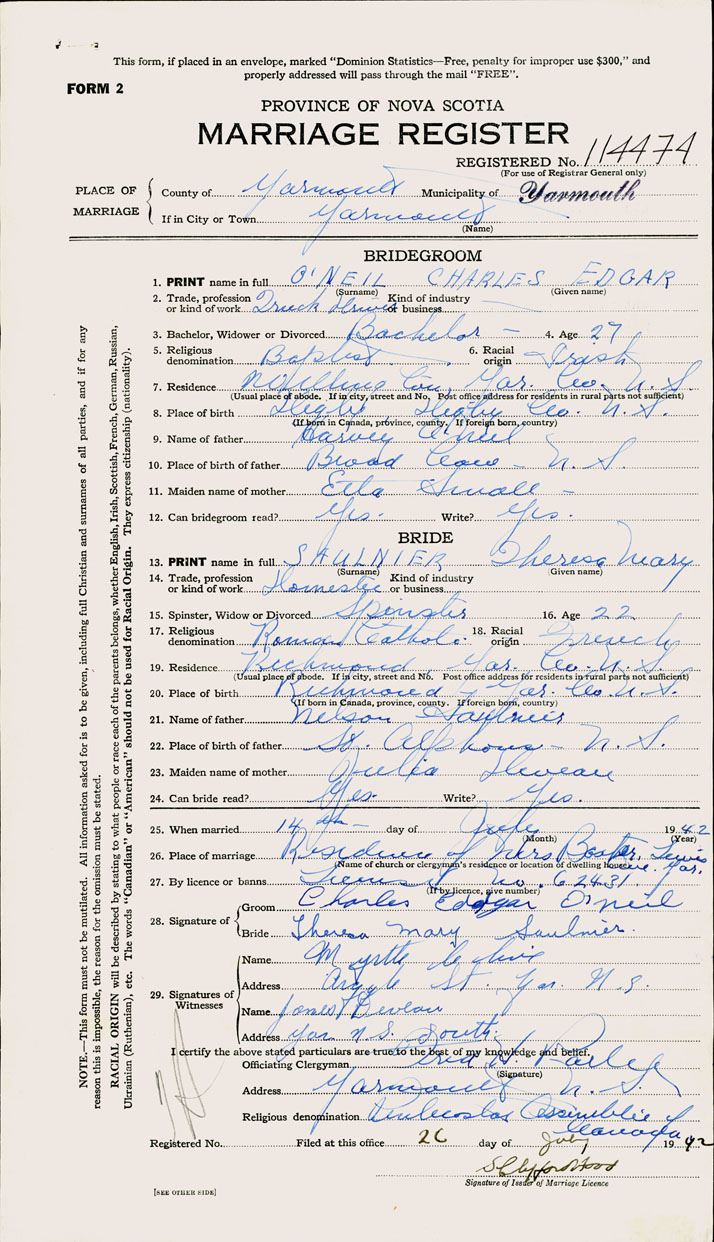 This form, if placed in an envelope, marked "Dominion Statistics—Free, penalty for improper use $300," and
properly addressed will pass through the mail "FREE".
FORM 2
PROVINCE OF NOVA SCOTIA
MARRIAGE REGISTER
REGISTERED No. 114474
(For use of Registrar General only)
PLACE OF MARRIAGE
County of Yarmouth Municipality of Yarmouth
If in City or Town Yarmouth
(Name)
BRIDEGROOM
1. PRINT name in full O'NEIL CHARLES EDGAR
(Surname) (Given name)
2. Trade, profession or kind of work Truck driver Kind of industry or business
3. Bachelor, Widower or Divorced Bachelor - 4. Age 27
5. Religious denomination Baptist 6. Racial origin Irish
7. Residence Yar. Co. N. S.
(Usual place of abode. If in city, street and No. Post office address for residents in rural parts not sufficient)
8. Place of birth Digby Digby Co. N. S.
(If born in Canada, province, county. If foreign born, country)
9. Name of father Harvey O'Neil
10. Place of birth of father Broad Cove - N. S.
11. Maiden name of mother Etta Small -
12. Can bridegroom read? Yes. Write? Yes.
BRIDE
13. PRINT name in full SAULNIER Theresa Mary
(Surname) (Given name)
14. Trade, profession or kind of work Domestic Kind of industry or business
15. Spinster, Widow or Divorced Spinster 16. Age 22
17. Religious denomination Roman Catholic 18. Racial origin French
19. Residence Richmond Yar. Co. N. S.
(Usual place of abode. If in city, street and No. Post office address for residents in rural parts not sufficient)
20. Place of birth Richmond Yar. Co. N. S.
(If born in Canada, province, county. If foreign born, country)
21. Name of father Nelson Saulnier
22. Place of birth of father St. Alphonse - N. S.
23. Maiden name of mother Julia Deveau
24. Can bride read? Yes. Write? Yes.
25. When married 14th day of July 1942
(Month) (Year)
26. Place of marriage Residence of Mrs. Baxter, Lewis Yar.
(Name of church or clergyman's residence or location of dwelling house)
27. By licence or banns License No. 62431.
(If by licence, give number)
28. Signature of
Groom Charles Edgar O'Neil
Bride Theresa Mary Saulnier.
29. Signatures of Witnesses
Name Myrtle
Address Argyle St. Yar. N. S.
Name Deveau
Address Yar N.S. South.
I certify the above stated particulars are true to the best of my knowledge and belief.
Officiating Clergyman
(Signature)
Address Yarmouth N. S.
Religious denomination Pentecostal Assemblies of
Canada
Registered No. Filed at this office 26 day of July 1942
Signature of Issuer of Marriage Licence
[SEE OTHER SIDE]
NOTE.—This form must not be mutilated. All information asked for is to be given, including full Christian and surnames of all parties, and if for any
reason this is impossible, the reason for the omission must be stated.
RACIAL ORIGIN will be described by stating to what people or race each of the parents belongs, whether English, Irish, Scottish, French, German, Russian,
Ukrainian (Ruthenian), etc. The words "Canadian" or "American" should not be used for Racial Origin. They express citizenship (nationality).